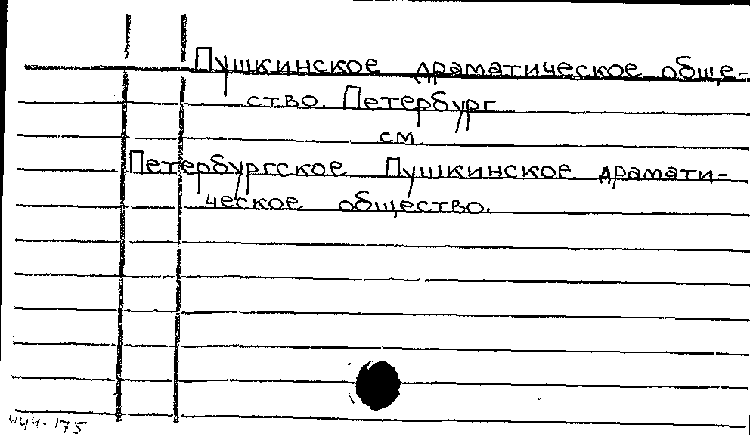 Пушкинское драматическое обще-
ство. Петербург
см
Петербургское Пушкинское драмати-
ческое общество.